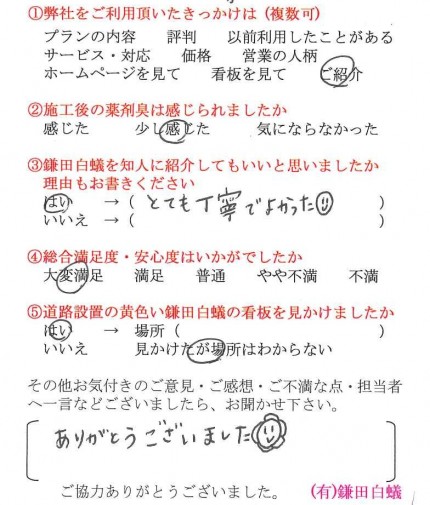 ①弊社をご利用頂いたきっかけは（複数可）
プランの内容 評判 以前利用したことがある
サービス・対応 価格 営業の人柄
ホームページを見て 看板を見て ご紹介
②施工後の薬剤臭は感じられましたか
感じた 少し感じた 気にならなかった
③鎌田白蟻を知人に紹介してもいいと思いましたか
理由もお書きください
はい →（とても丁寧でよかった ）
いいえ →（ ）
④総合満足度・安心度はいかがでしたか
大変満足 満足 普通 やや不満 不満
⑤道路設置の黄色い鎌田白蟻の看板を見かけましたか
はい → 場所（ ）
いいえ 見かけたが場所はわからない
その他お気付きのご意見・ご感想・ご不満な点・担当者
へ一言などございましたら、お聞かせ下さい。
ありがとうございました
ご協力ありがとうございました。 (有)鎌田白蟻